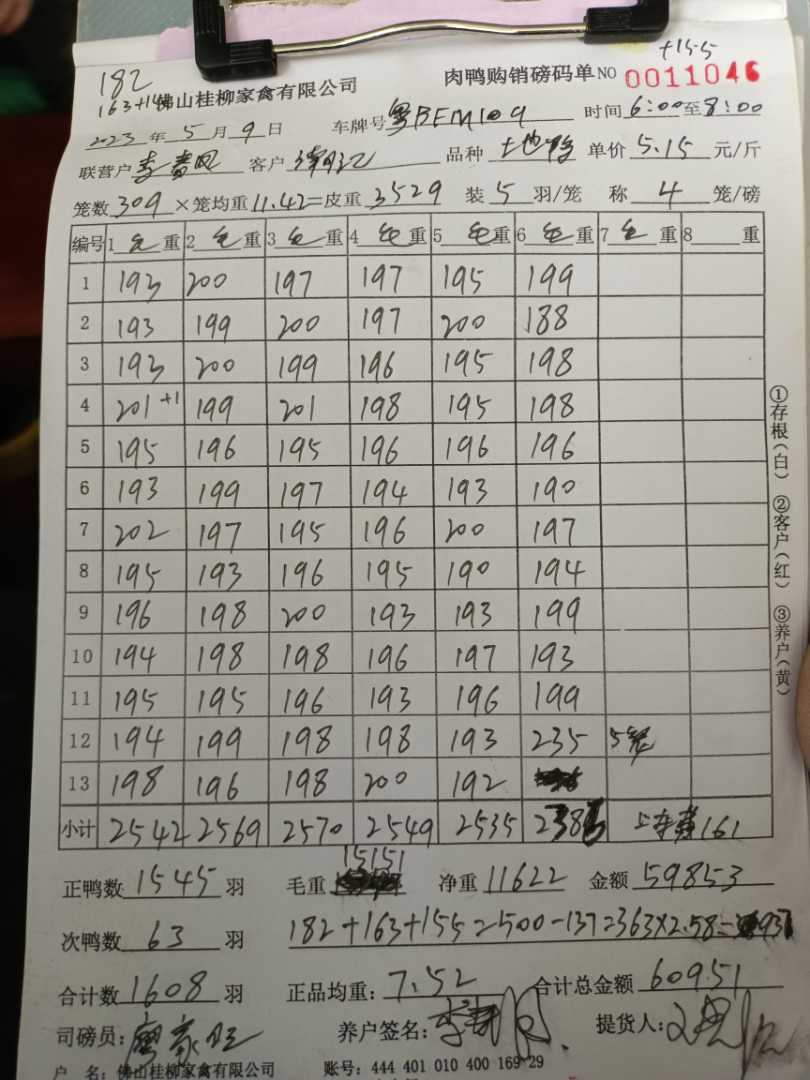 +155
182
163+1
佛山桂柳家禽有限公司 肉鸭购销磅码单 NO 0011046
2023年5月9日 车牌号 粤 时间6:00至8:00
联营户 客户 品种 土地鸭 单价5.15元/斤
笼数309×笼均重11.42=皮重3529 装5羽/笼 称4笼/磅
编号 1毛重 2毛重 3毛重 4毛重 5毛重 6毛重 7毛重 8重
1 193 200 197 197 195 199
2 193 199 200 197 200 188
3 193 200 199 196 195 198
4 201+1 199 201 198 195 198
5 195 196 195 196 196 196
6 193 199 197 194 193 190
7 202 197 195 196 200 197
8 195 193 196 195 190 194
9 196 198 200 193 193 199
10 194 198 198 196 197 193
11 195 195 196 193 196 199
12 194 199 198 198 193 235 5笼
13 198 196 198 200 192
小计 2542 2569 2570 2549 2535 238 上车费161
正鸭数1545羽 毛重15151 净重11622 金额59853
次鸭数63羽 182+163+155=500-137=363×2.58=937
合计数1608羽 正品均重:7.52 合计总金额60951
司磅员: 养户签名: 提货人:
户名:佛山桂柳家禽有限公司 账号:444 401 010 400 169 29
①存根(白) ②客户(红) ③养户(黄)